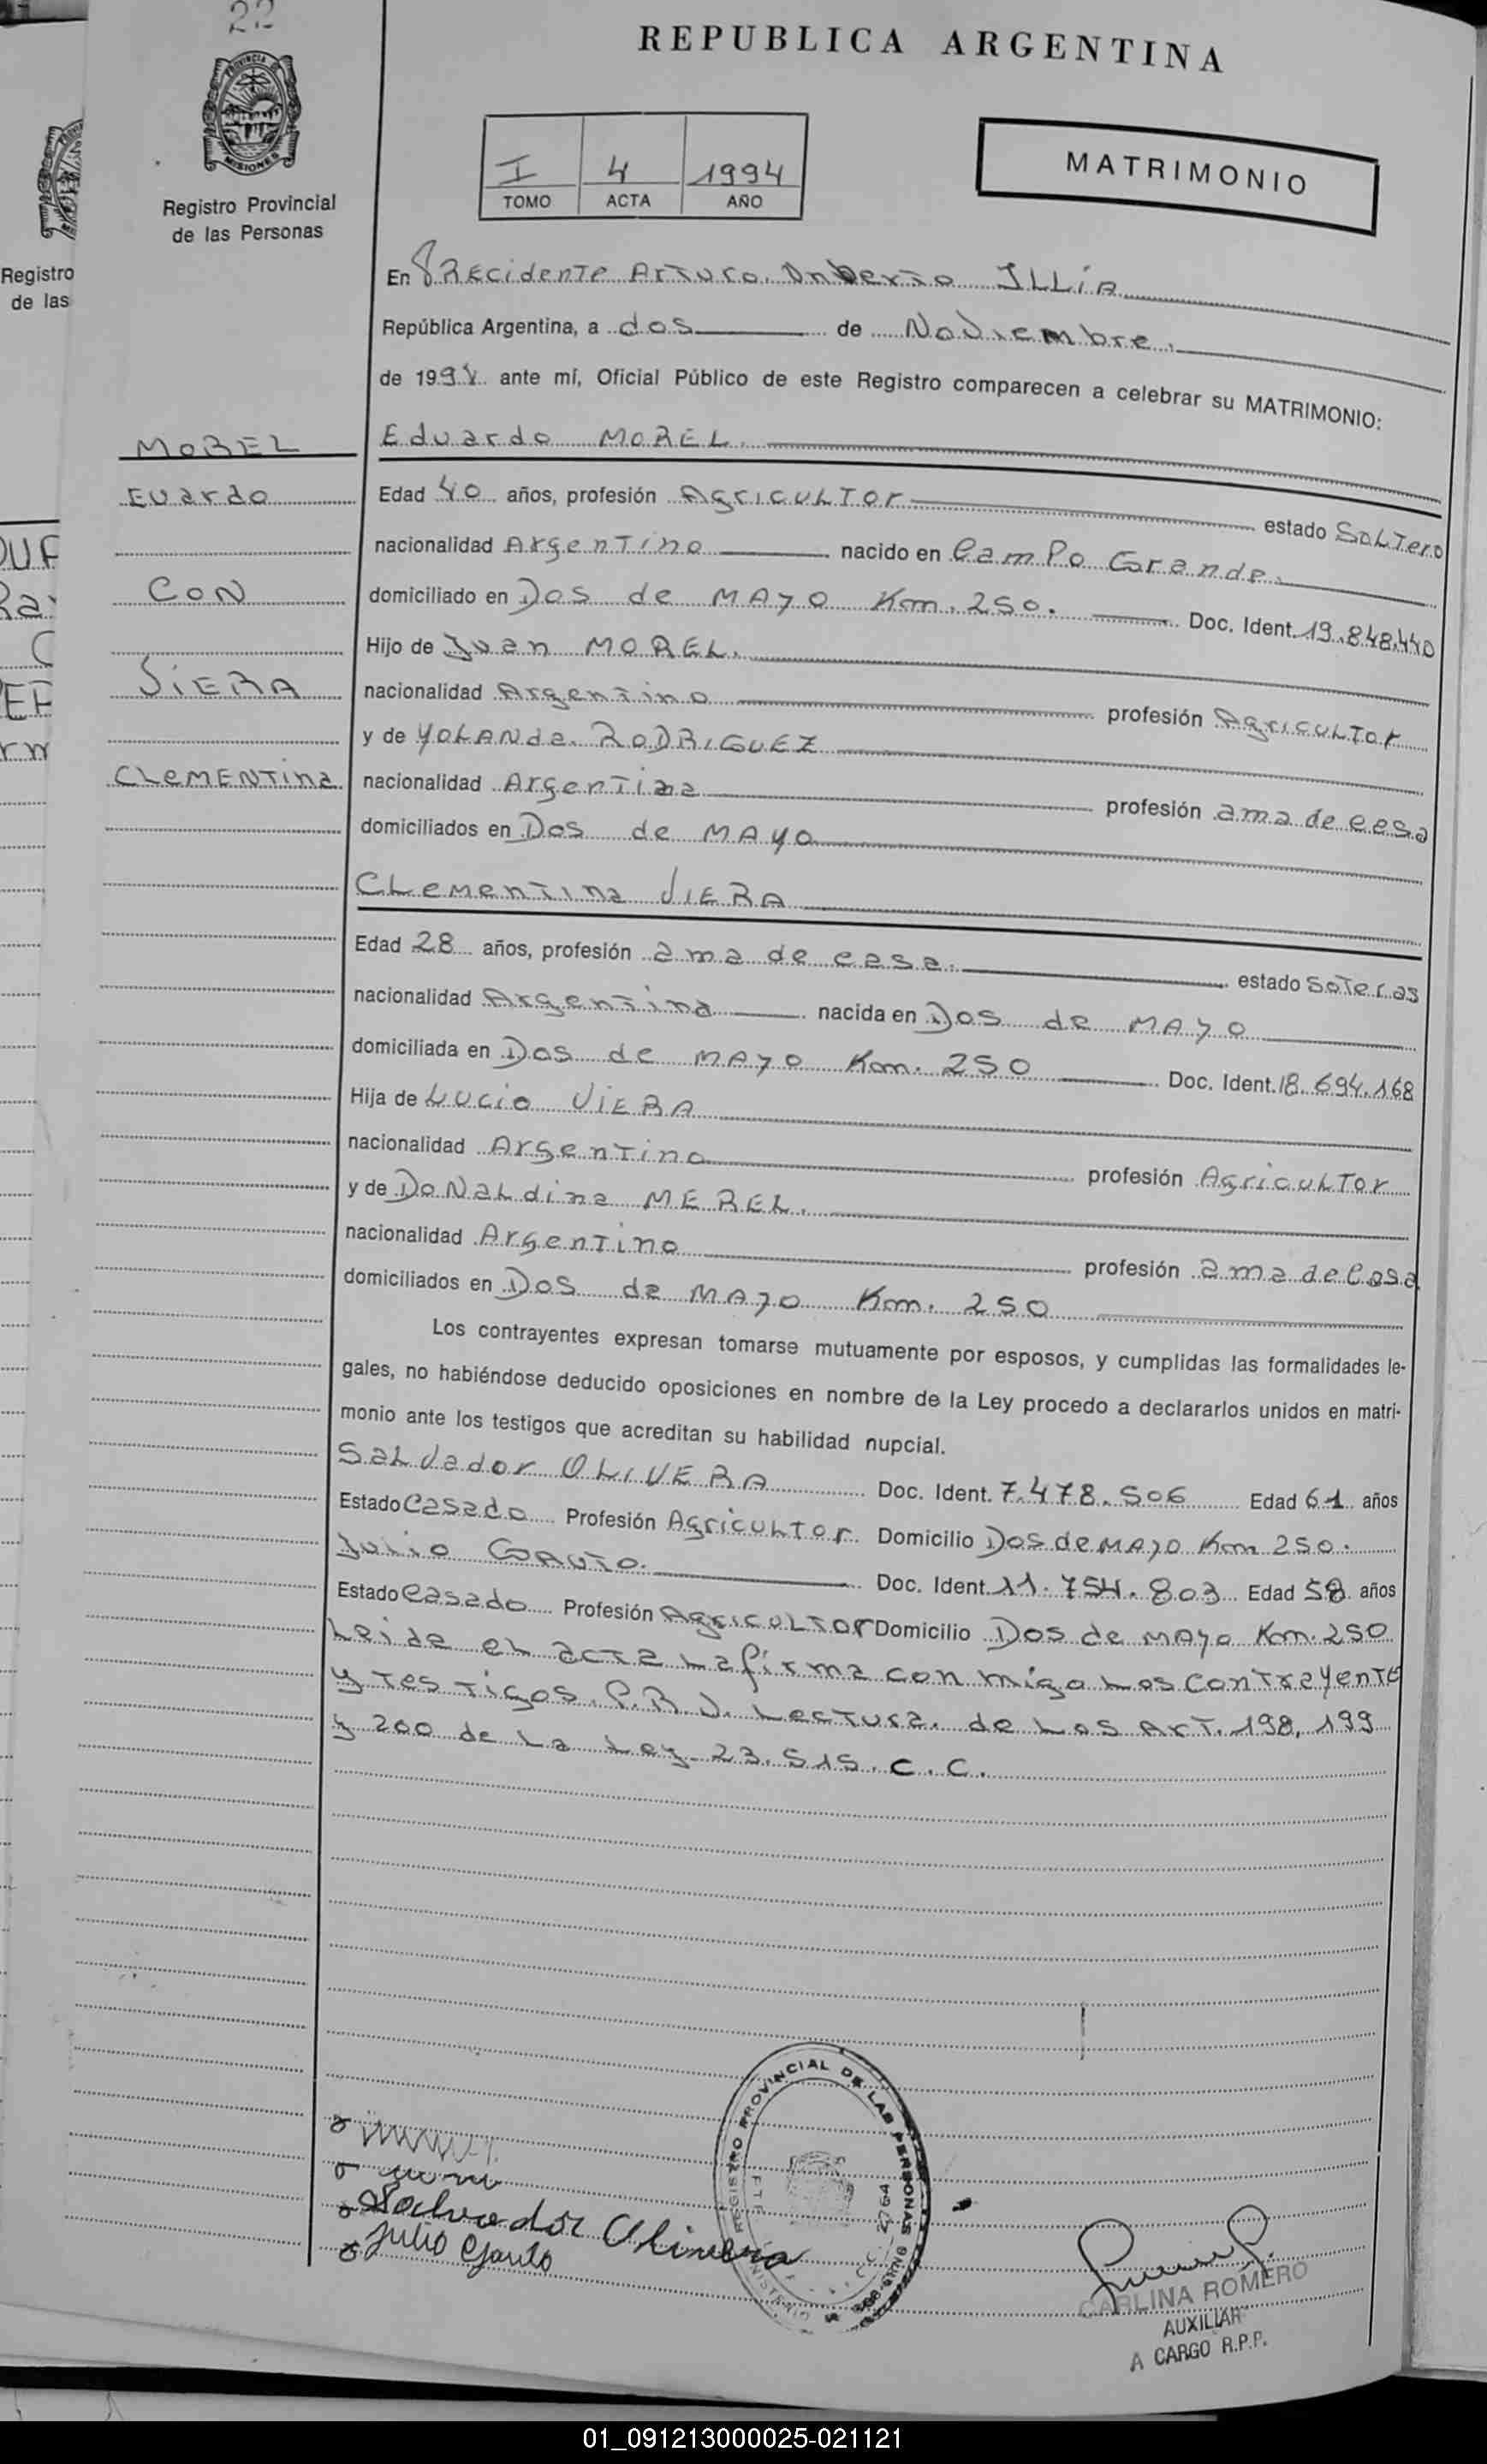 22
REPUBLICA ARGENTINA
PROVINCIA DE
MISIONES
Registro Provincial
de las Personas
I 4 1994
TOMO ACTA AÑO
MATRIMONIO
Registro
de las
En PRECidente Arturo Unberto ILLiA
República Argentina, a dos de Noviembre.
de 1994 ante mí, Oficial Público de este Registro comparecen a celebrar su MATRIMONIO:
MOREL
Eduardo MOREL.
Euardo
Edad 40 años, profesión AgricuLTor estado SoLTero
nacionalidad ArgenTino nacido en CamPo Grande.
CON
domiciliado en Dos de MAyo Km. 250. Doc. Ident. 19.848.440
Hijo de Juan MOREL.
ViERA
nacionalidad Argentino profesión AgricuLTor
y de YOLANda RODRIGUEZ
CLeMENTina
nacionalidad ArgenTina profesión ama de casa
domiciliados en Dos de MAyo
CLemenTina VIERA
Edad 28 años, profesión ama de casa. estado SoTeras
nacionalidad ArgenTina nacida en Dos de MAyo
domiciliada en Dos de MAyo Km. 250 Doc. Ident. 18.694.168
Hija de Lucio ViERA
nacionalidad ArgenTino profesión AgricuLTor
y de DoNaLdina MEREL.
nacionalidad ArgenTino profesión ama de Casa
domiciliados en Dos de MAyo Km. 250
Los contrayentes expresan tomarse mutuamente por esposos, y cumplidas las formalidades le-
gales, no habiéndose deducido oposiciones en nombre de la Ley procedo a declararlos unidos en matri-
monio ante los testigos que acreditan su habilidad nupcial.
SaLvador OLIVERA Doc. Ident. 7.478.506 Edad 61 años
Estado Casado Profesión AgricuLTor Domicilio Dos de MAyo Km 250.
Julio GAUTO. Doc. Ident. 11.754.803 Edad 58 años
Estado Casado Profesión AgricuLTor Domicilio Dos de MAyo Km. 250
Leida eL acTa La firma con migo Los conTrayente
y TesTigos. P.R.J. LecTura de Los ArT. 198, 199
y 200 de La Ley 23.515. C.C.
Salvador Olivera
Julio Gauto
REGISTRO PROVINCIAL DE LAS PERSONAS
2764
CARLINA ROMERO
AUXILIAR
A CARGO R.P.P.
01_091213000025-021121